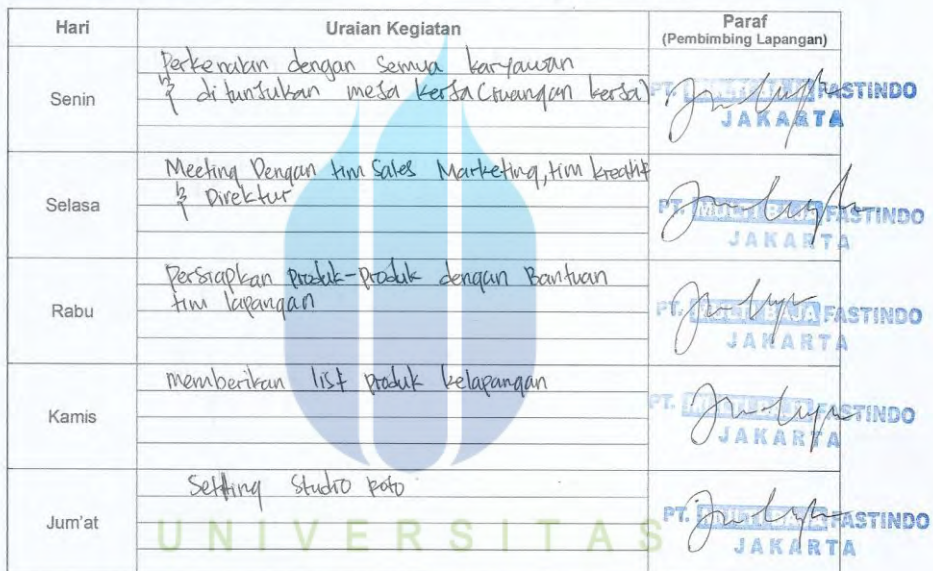 Hari Uraian Kegiatan Paraf
(Pembimbing Lapangan)
Senin
Perkenalan dengan semua karyawan
& ditunjukan mesa kerja (ruangan kerja)
PT. MULTI BAJA FASTINDO
JAKARTA
Selasa
Meeting Dengan tim Sales Marketing, tim kreatif
& Direktur
PT. MULTI BAJA FASTINDO
JAKARTA
Rabu
Persiapkan produk-produk dengan Bantuan
tim lapangan
PT. MULTI BAJA FASTINDO
JAKARTA
Kamis
memberikan list produk kelapangan
PT. MULTI BAJA FASTINDO
JAKARTA
Jum'at
Setting Studio Foto
PT. MULTI BAJA FASTINDO
JAKARTA
UNIVERSITAS